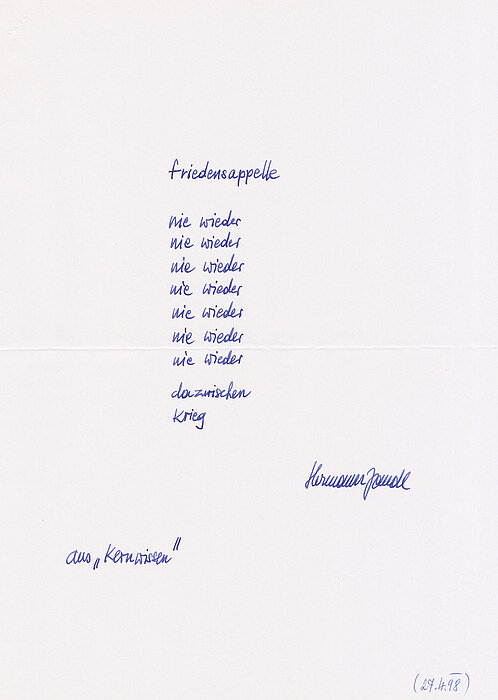 friedensappelle
nie wieder
nie wieder
nie wieder
nie wieder
nie wieder
nie wieder
nie wieder
dazwischen
krieg
Hermann Jandl
aus „Kernwissen"
(27.4.98)